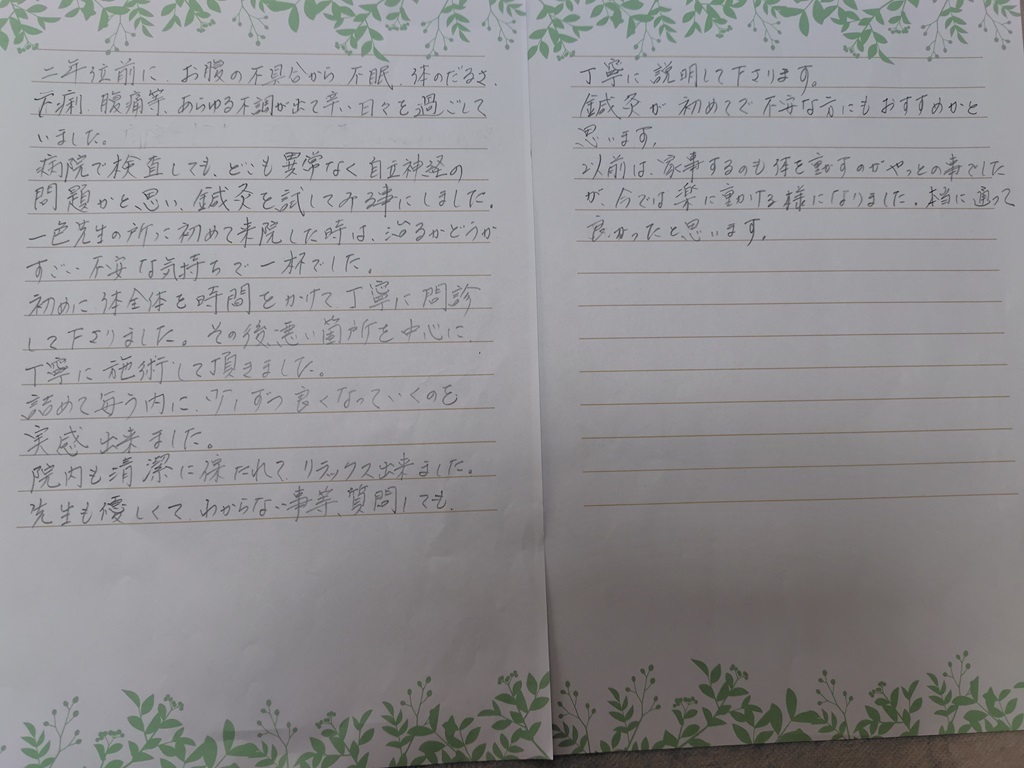 二年位前に、お腹の不具合から不眠、体のだるさ、
下痢、腹痛等、あらゆる不調が出て辛い日々を過ごして
いました。
病院で検査しても、どこも異常なく自立神経の
問題かと思い、鍼灸を試してみる事にしました。
一色先生の所に初めて来院した時は、治るかどうか
すごい不安な気持ちで一杯でした。
初めに体全体を時間をかけて丁寧に問診
して下さりました。その後、悪い箇所を中心に、
丁寧に施術して頂きました。
詰めて毎う内に、少しずつ良くなっていくのを
実感出来ました。
院内も清潔に保たれて、リラックス出来ました。
先生も優しくて、わからない事等、質問しても、
丁寧に説明して下さります。
鍼灸が初めてで不安な方にもおすすめかと
思います。
以前は、家事するのも体を動かすのがやっとの事でした
が、今では楽に動ける様になりました。本当に通って
良かったと思います。